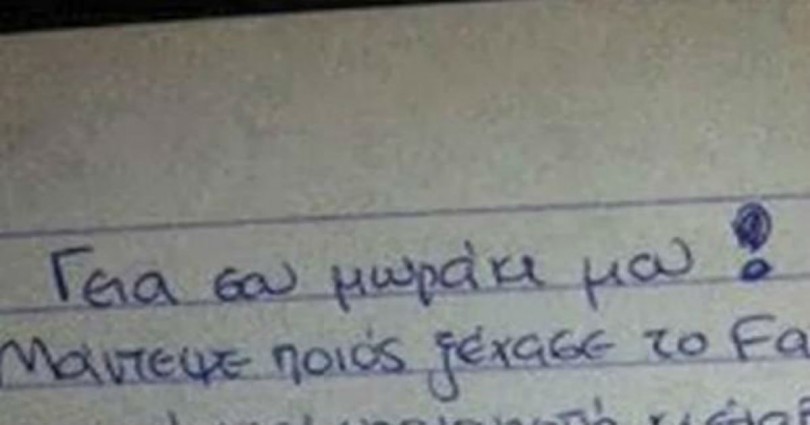 Γεια σου μωράκι μου!
Μάντεψε ποιός ξέχασε το Fa